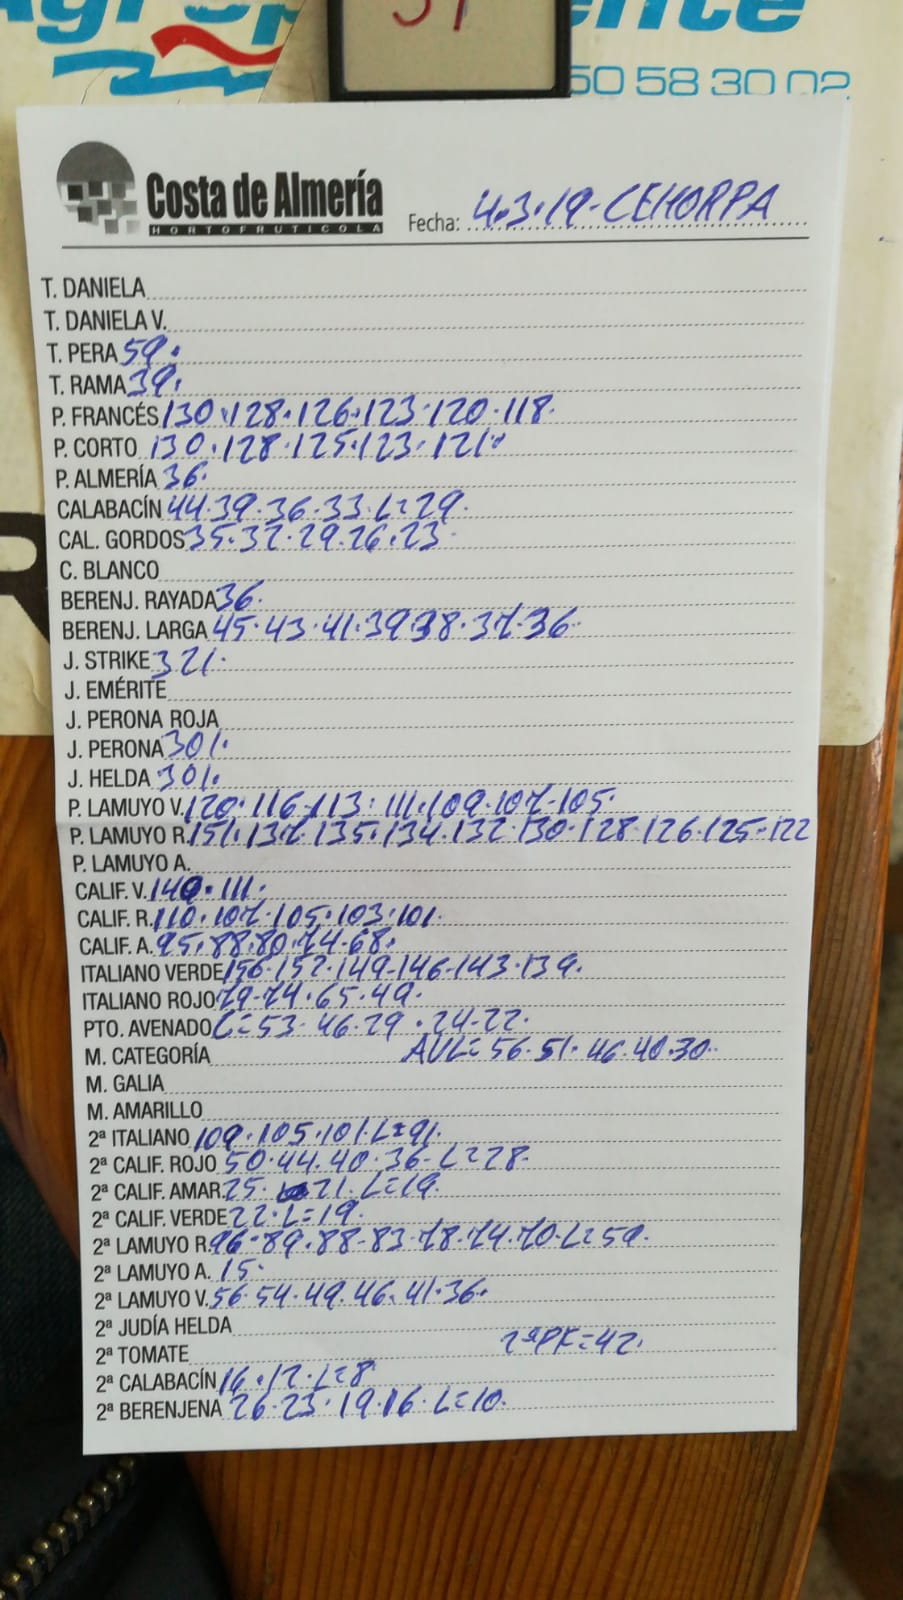 50 58 30 02
Costa de Almería
HORTOFRUTICOLA
Fecha: 4.3.19-CEHORPA
T. DANIELA
T. DANIELA V.
T. PERA 59.
T. RAMA 39.
P. FRANCÉS 130.128.126.123.120.118.
P. CORTO 130.128.125.123.121.
P. ALMERÍA 36.
CALABACÍN 44.39.36.33.L=29.
CAL. GORDOS 35.32.29.26.23.
C. BLANCO
BERENJ. RAYADA 36.
BERENJ. LARGA 45.43.41.39.38.37.36.
J. STRIKE 321.
J. EMÉRITE
J. PERONA ROJA
J. PERONA 301.
J. HELDA 301.
P. LAMUYO V. 120.116.113.111.109.107.105.
P. LAMUYO R. 151.137.135.134.132.130.128.126.125.122
P. LAMUYO A.
CALIF. V. 140.111.
CALIF. R. 110.107.105.103.101.
CALIF. A. 95.88.80.74.68.
ITALIANO VERDE 156.152.149-146-143.139.
ITALIANO ROJO 79-74.65.49.
PTO. AVENADO C=53.46.29.24-22.
M. CATEGORÍA AVL=56.51.46.40.30.
M. GALIA
M. AMARILLO
2ª ITALIANO 109.105.101.L=91.
2ª CALIF. ROJO 50.44.40.36-L=28.
2ª CALIF. AMAR. 25. 21.L=19.
2ª CALIF. VERDE 22.L=19.
2ª LAMUYO R. 96.89.88-83.78.74.70.L=59.
2ª LAMUYO A. 15.
2ª LAMUYO V. 56.54.49.46.41.36.
2ª JUDÍA HELDA
2ª TOMATE 2ªPF=42.
2ª CALABACÍN 16.12.L=8
2ª BERENJENA 26.23.19.16.L=10.